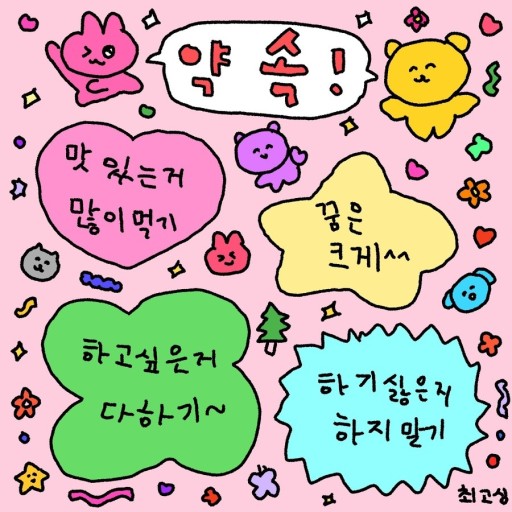 약속!
맛있는거
많이먹기
꿈은
크게^^
하고싶은거
다하기~
하기싫은거
하지말기
최고심